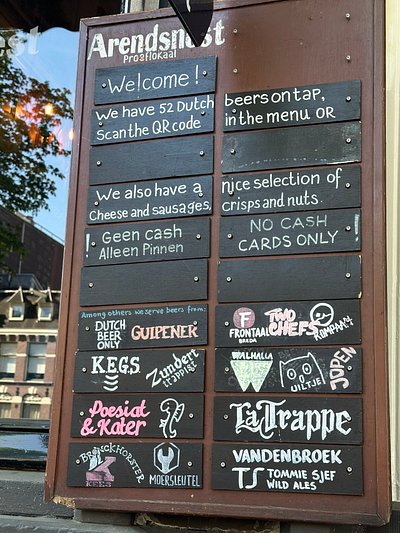 Arendsnest
Proeflokaal
Welcome!
We have 52 Dutch beers on tap,
Scan the QR code in the menu OR
We also have a nice selection of
Cheese and sausages, crisps and nuts.
! Geen cash NO CASH
Alleen Pinnen CARDS ONLY
Among others we serve beers from:
DUTCH BEER ONLY
GULPENER
F FRONTAAL BREDA
TWO CHEFS
ROMPAAN
KEGS
Zundert
TRAPPIST
WALHALLA
UILTJE
JOPEN
Poesiat & Kater
LaTrappe
BRONCKHORSTER
K
KEES
MOERSLEUTEL
VANDENBROEK
TS TOMMIE SJEF
WILD ALES